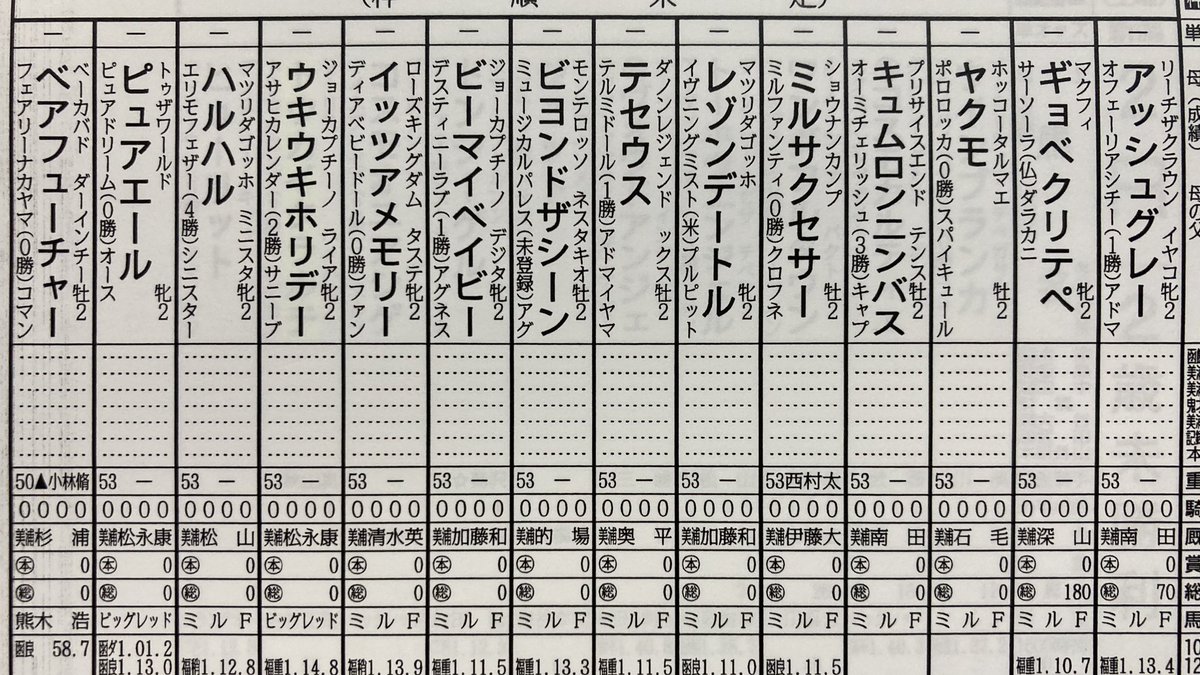 （枠順未定）
リーチザクラウン イヤコ牝2
アッシュグレー
オフェーリアシチー(1勝)アドマ
マクフィ 牝2
ギョベクリテペ
サーソーラ(仏)ダラカニ
ホッコータルマエ 牡2
ヤクモ
ポロロッカ(0勝)スパイキュール
プリサイスエンド テンス牡2
キュムロンニンバス
オーミチェリッシュ(3勝)キャプ
ショウナンカンプ 牡2
ミルサクセサー
ミルファンティ(0勝)クロフネ
マツリダゴッホ 牝2
レゾンデートル
イヴニングミスト(米)プルピット
ダノンレジェンド ックス牡2
テセウス
テルミドール(1勝)アドマイヤマ
モンテロッソ ネスタキオ牡2
ビヨンドザシーン
ミュージカルパレス(未登録)アグ
ジョーカプチーノ デジタ牝2
ビーマイベイビー
デスティニーラブ(1勝)アグネス
ローズキングダム タステ牝2
イッツアメモリー
ディアベビードール(0勝)ファン
ジョーカプチーノ ライア牝2
ウキウキホリデー
アサヒカレンダー(2勝)サニーブ
マツリダゴッホ ミニスタ牝2
ハルハル
エリモフェザー(4勝)シニスター
トゥザワールド 牝2
ピュアエール
ピュアドリーム(0勝)オース
ベーカバド ダーインチー牡2
ベアフューチャー
フェアリーナカヤマ(0勝)コマン
単
母(成績)
母の父
50▲小林脩 53 ― 53 ― 53 ― 53 ― 53 ― 53 ― 53 ― 53 ― 53西村太 53 ― 53 ― 53 ― 53 ― 重
0000 0000 0000 0000 0000 0000 0000 0000 0000 0000 0000 0000 0000 0000 騎
美浦杉浦 美浦松永康 美浦松山 美浦松永康 美浦清水英 美浦加藤和 美浦的場 美浦奥平 美浦加藤和 美浦伊藤大 美浦南田 美浦石毛 美浦深山 美浦南田 厩
㊍0 ㊍0 ㊍0 ㊍0 ㊍0 ㊍0 ㊍0 ㊍0 ㊍0 ㊍0 ㊍0 ㊍0 ㊍0 ㊍0 賞
総0 総0 総0 総0 総0 総0 総0 総0 総0 総0 総0 総0 総180 総70 総
熊木浩 ビッグレッド ミルF ビッグレッド ミルF ミルF ミルF ミルF ミルF ミルF ミルF ミルF ミルF ミルF 馬
函良 58.7 函ダ1.01.2
函良1.13.0 福稍1.12.8 福重1.14.8 福稍1.13.9 福重1.11.5 函重1.13.3 福重1.11.5 函良1.11.0 函良1.11.5 福重1.10.7 福重1.13.4